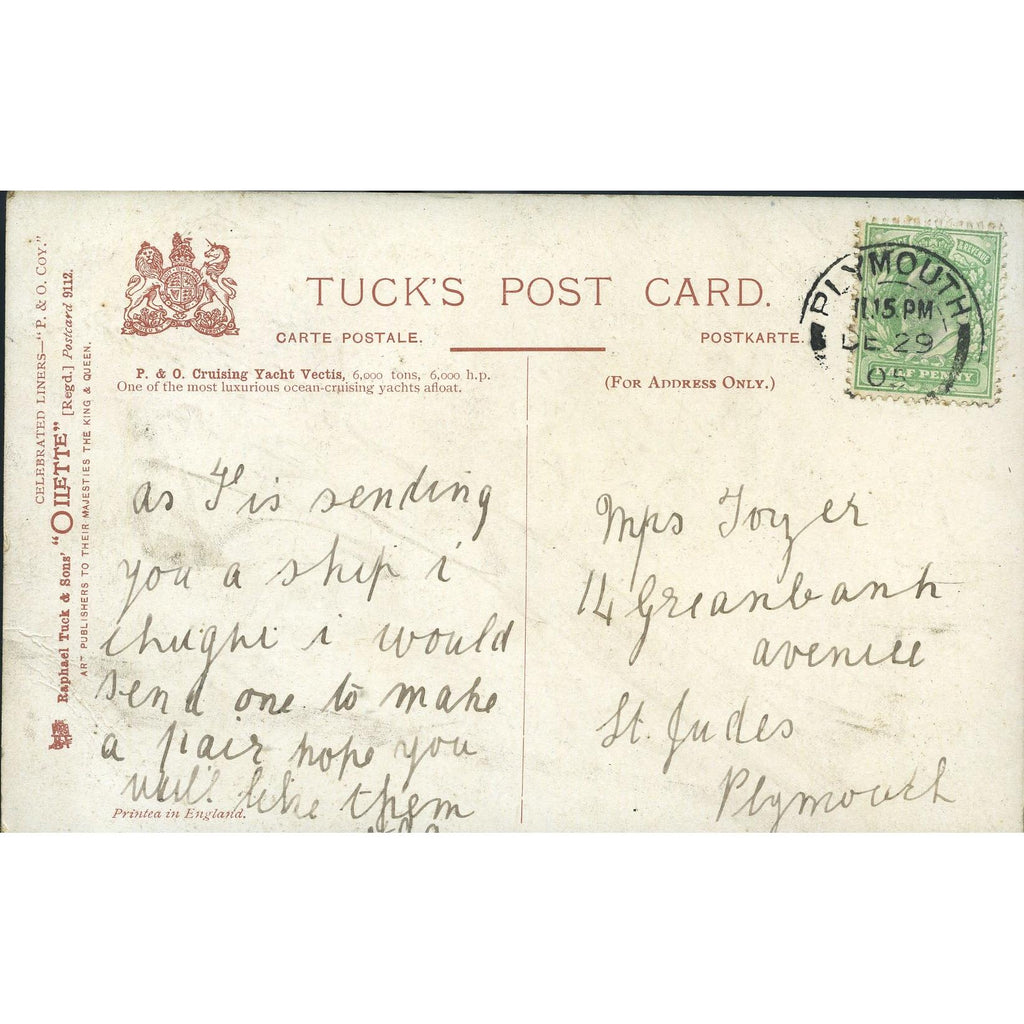 CELEBRATED LINERS—"P. & O. COY."
Raphael Tuck & Sons' "OILETTE" [Regd.] Postcard 9112.
ART PUBLISHERS TO THEIR MAJESTIES THE KING & QUEEN.
TUCK'S POST CARD.
CARTE POSTALE. POSTKARTE.
P. & O. Cruising Yacht Vectis, 6,000 tons, 6,000 h.p.
One of the most luxurious ocean-cruising yachts afloat.
(FOR ADDRESS ONLY.)
PLYMOUTH
11.15 PM
DE 29
05
REVENUE
HALF PENNY
as F is sending
you a ship i
thught i would
send one to make
a pair hope you
will like them
Printed in England.
Mrs Tozer
14 Greanbank
avenue
St. Judes
Plymouth